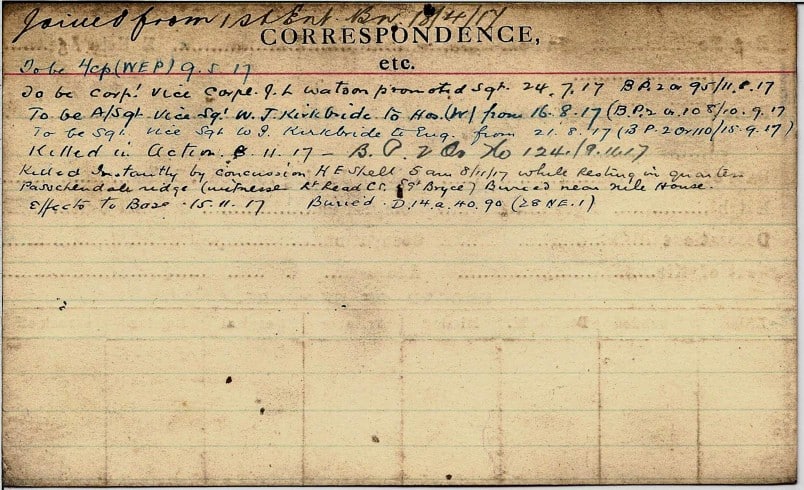 Joined from 1st Ent. Bn. 18/4/17
CORRESPONDENCE,
etc.
To be 4cp (WEP) 9.5.17
To be Corpl vice Corpl. J. L Watson promoted Sgt. 24.7.17 B.P.2 or 95/11.8.17
To be A/Sgt. Vice Sgt W. J. Kirkbride to Hos. (W) from 16.8.17 (B.P.2 or 108/10.9.17
To be Sgt vice Sgt W J. Kirkbride to Eng. from 21.8.17 (B P. 2 Or 110/15.9.17)
Killed in Action. 8.11.17 - B. P. 2 Or No 124/19.11.17
Killed Instantly by concussion H E Shell 5 am 8/11/17 while Resting in quarters
Passchendale ridge (witnesses Lt Read CS. Sgt Bryce) Buried near Nile House.
Effects to Base 15.11.17 Buried. D.14.a.40.90 (28 NE.1)